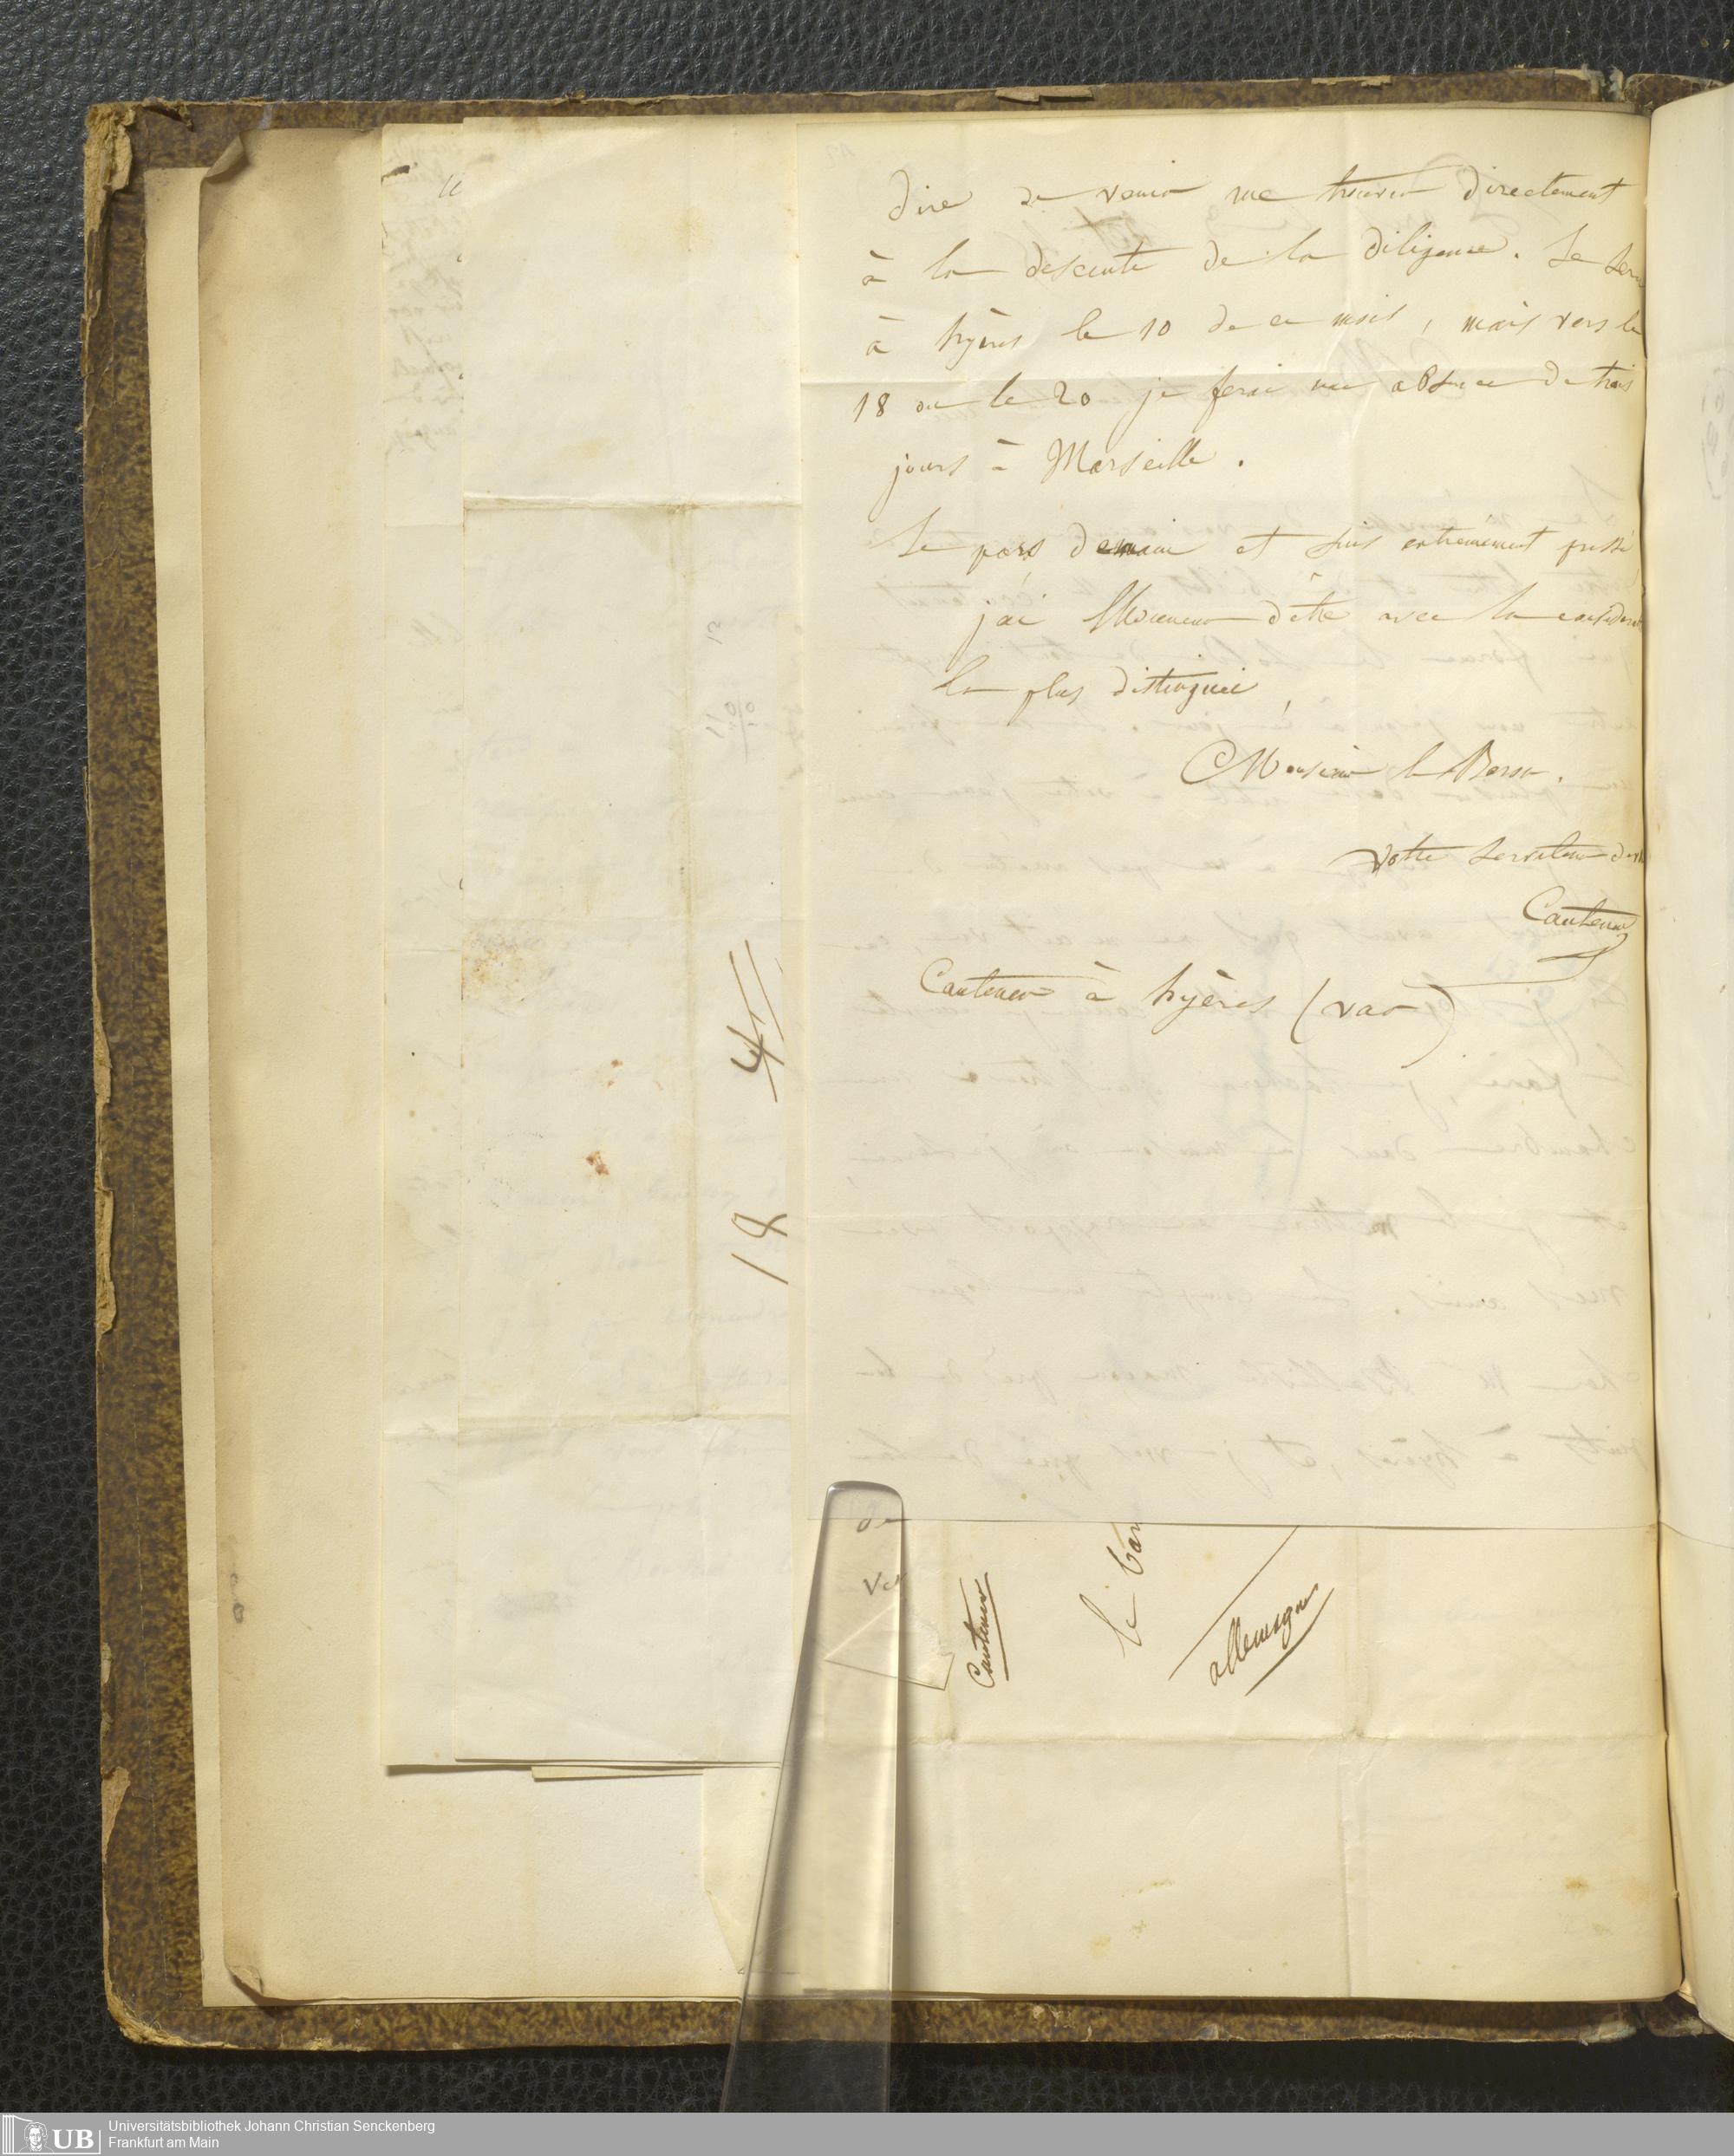 dire de venir me trouver directement
à la descente de la diligence. Je serai
à hyères le 10 de ce mois, mais vers le
18 ou le 20 je ferai une absence de trois
jours à Marseille.
Je pars demain et suis extrêmement pressé
j'ai l'honneur d'être avec la considération
la plus distinguée,
Monsieur le Baron.
Votre serviteur dev
Cantener
Cantener à hyères (var)
4
18
de
Cantener
le bar
allemagne
Universitätsbibliothek Johann Christian Senckenberg
Frankfurt am Main
UB